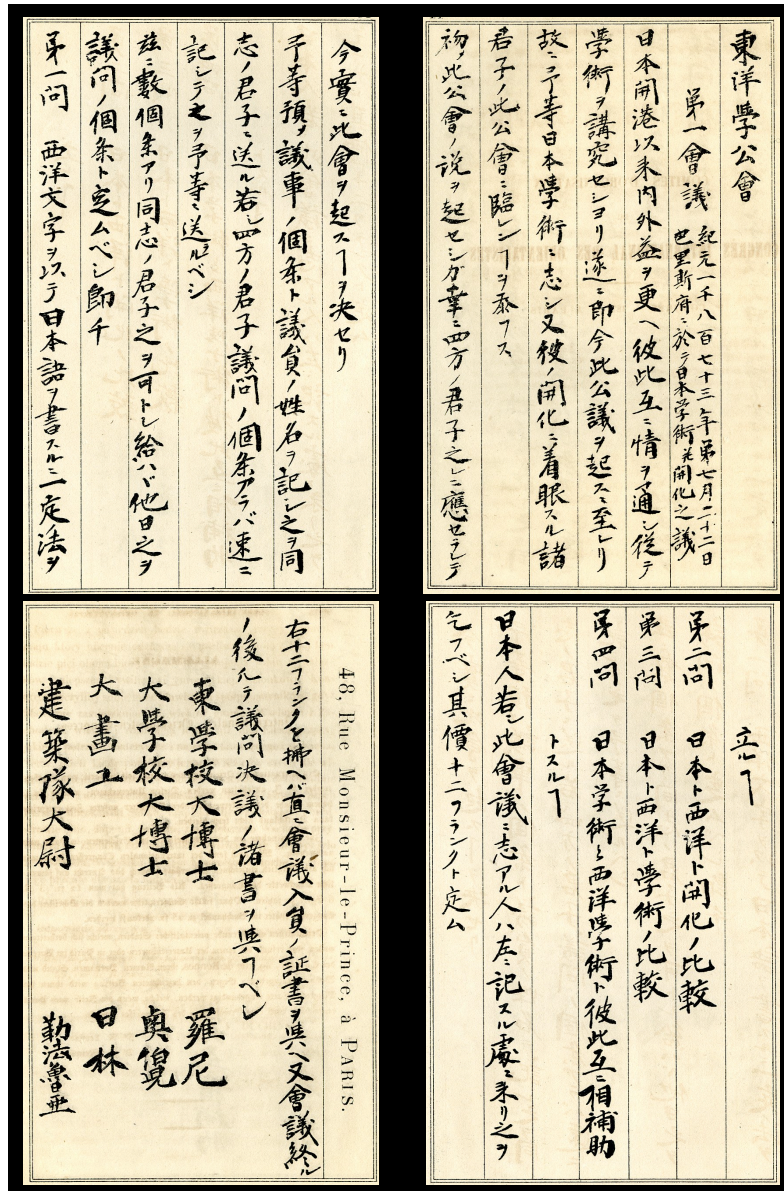 東洋學公會
第一會議 紀元一千八百七十三年第七月二十二日
巴里斯府ニ於テ日本学術並開化之議
日本開港以来内外益ヲ更ヘ彼此互ニ情ヲ通シ従テ
學術ヲ講究セシヨリ遂ニ即今此公議ヲ起スニ至レリ
故ニ予等日本學術ニ志シ又彼ノ開化ニ着眼スル諸
君子ノ此公會ニ臨ンヿヲ忝フス
初メ此公會ノ説ヲ起セシガ幸ニ四方ノ君子之レニ應セラレテ
今實ニ此會ヲ起スヿヲ决セリ
予等預メ議事ノ個条ト議員ノ姓名ヲ記シ之ヲ同
志ノ君子ニ送ル若シ四方ノ君子議問ノ個条アラバ速ニ
記シテ之ヲ予等ニ送ルベシ
茲ニ數個条アリ同志ノ君子之ヲ可トシ給ハヾ他日之ヲ
議問ノ個条ト定ムベシ即チ
第一問 西洋文字ヲ以テ日本語ヲ書スルニ一定法ヲ
立ルヿ
第二問 日本ト西洋ト開化ノ比較
第三問 日本ト西洋ト學術ノ比較
第四問 日本学術ト西洋學術ト彼此互ニ相補助
トスルヿ
日本人若シ此會議ニ志アル人ハ左ニ記スル處ニ来リ之ヲ
乞フベシ其價十二フランクト定ム
48, Rue Monsieur-le-Prince, à PARIS.
右十二フランクを拂ヘバ直ニ會議入員ノ証書ヲ與ヘ又會議終ル
ノ後凡テ議問决議ノ諸書ヲ與フベシ
東學校大博士 羅尼
大學校大博士 奥
大畫工 日林
建築隊大尉 勒法魯亜